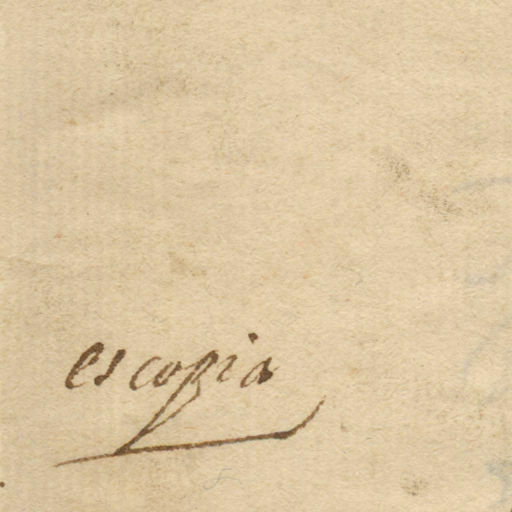 es copia